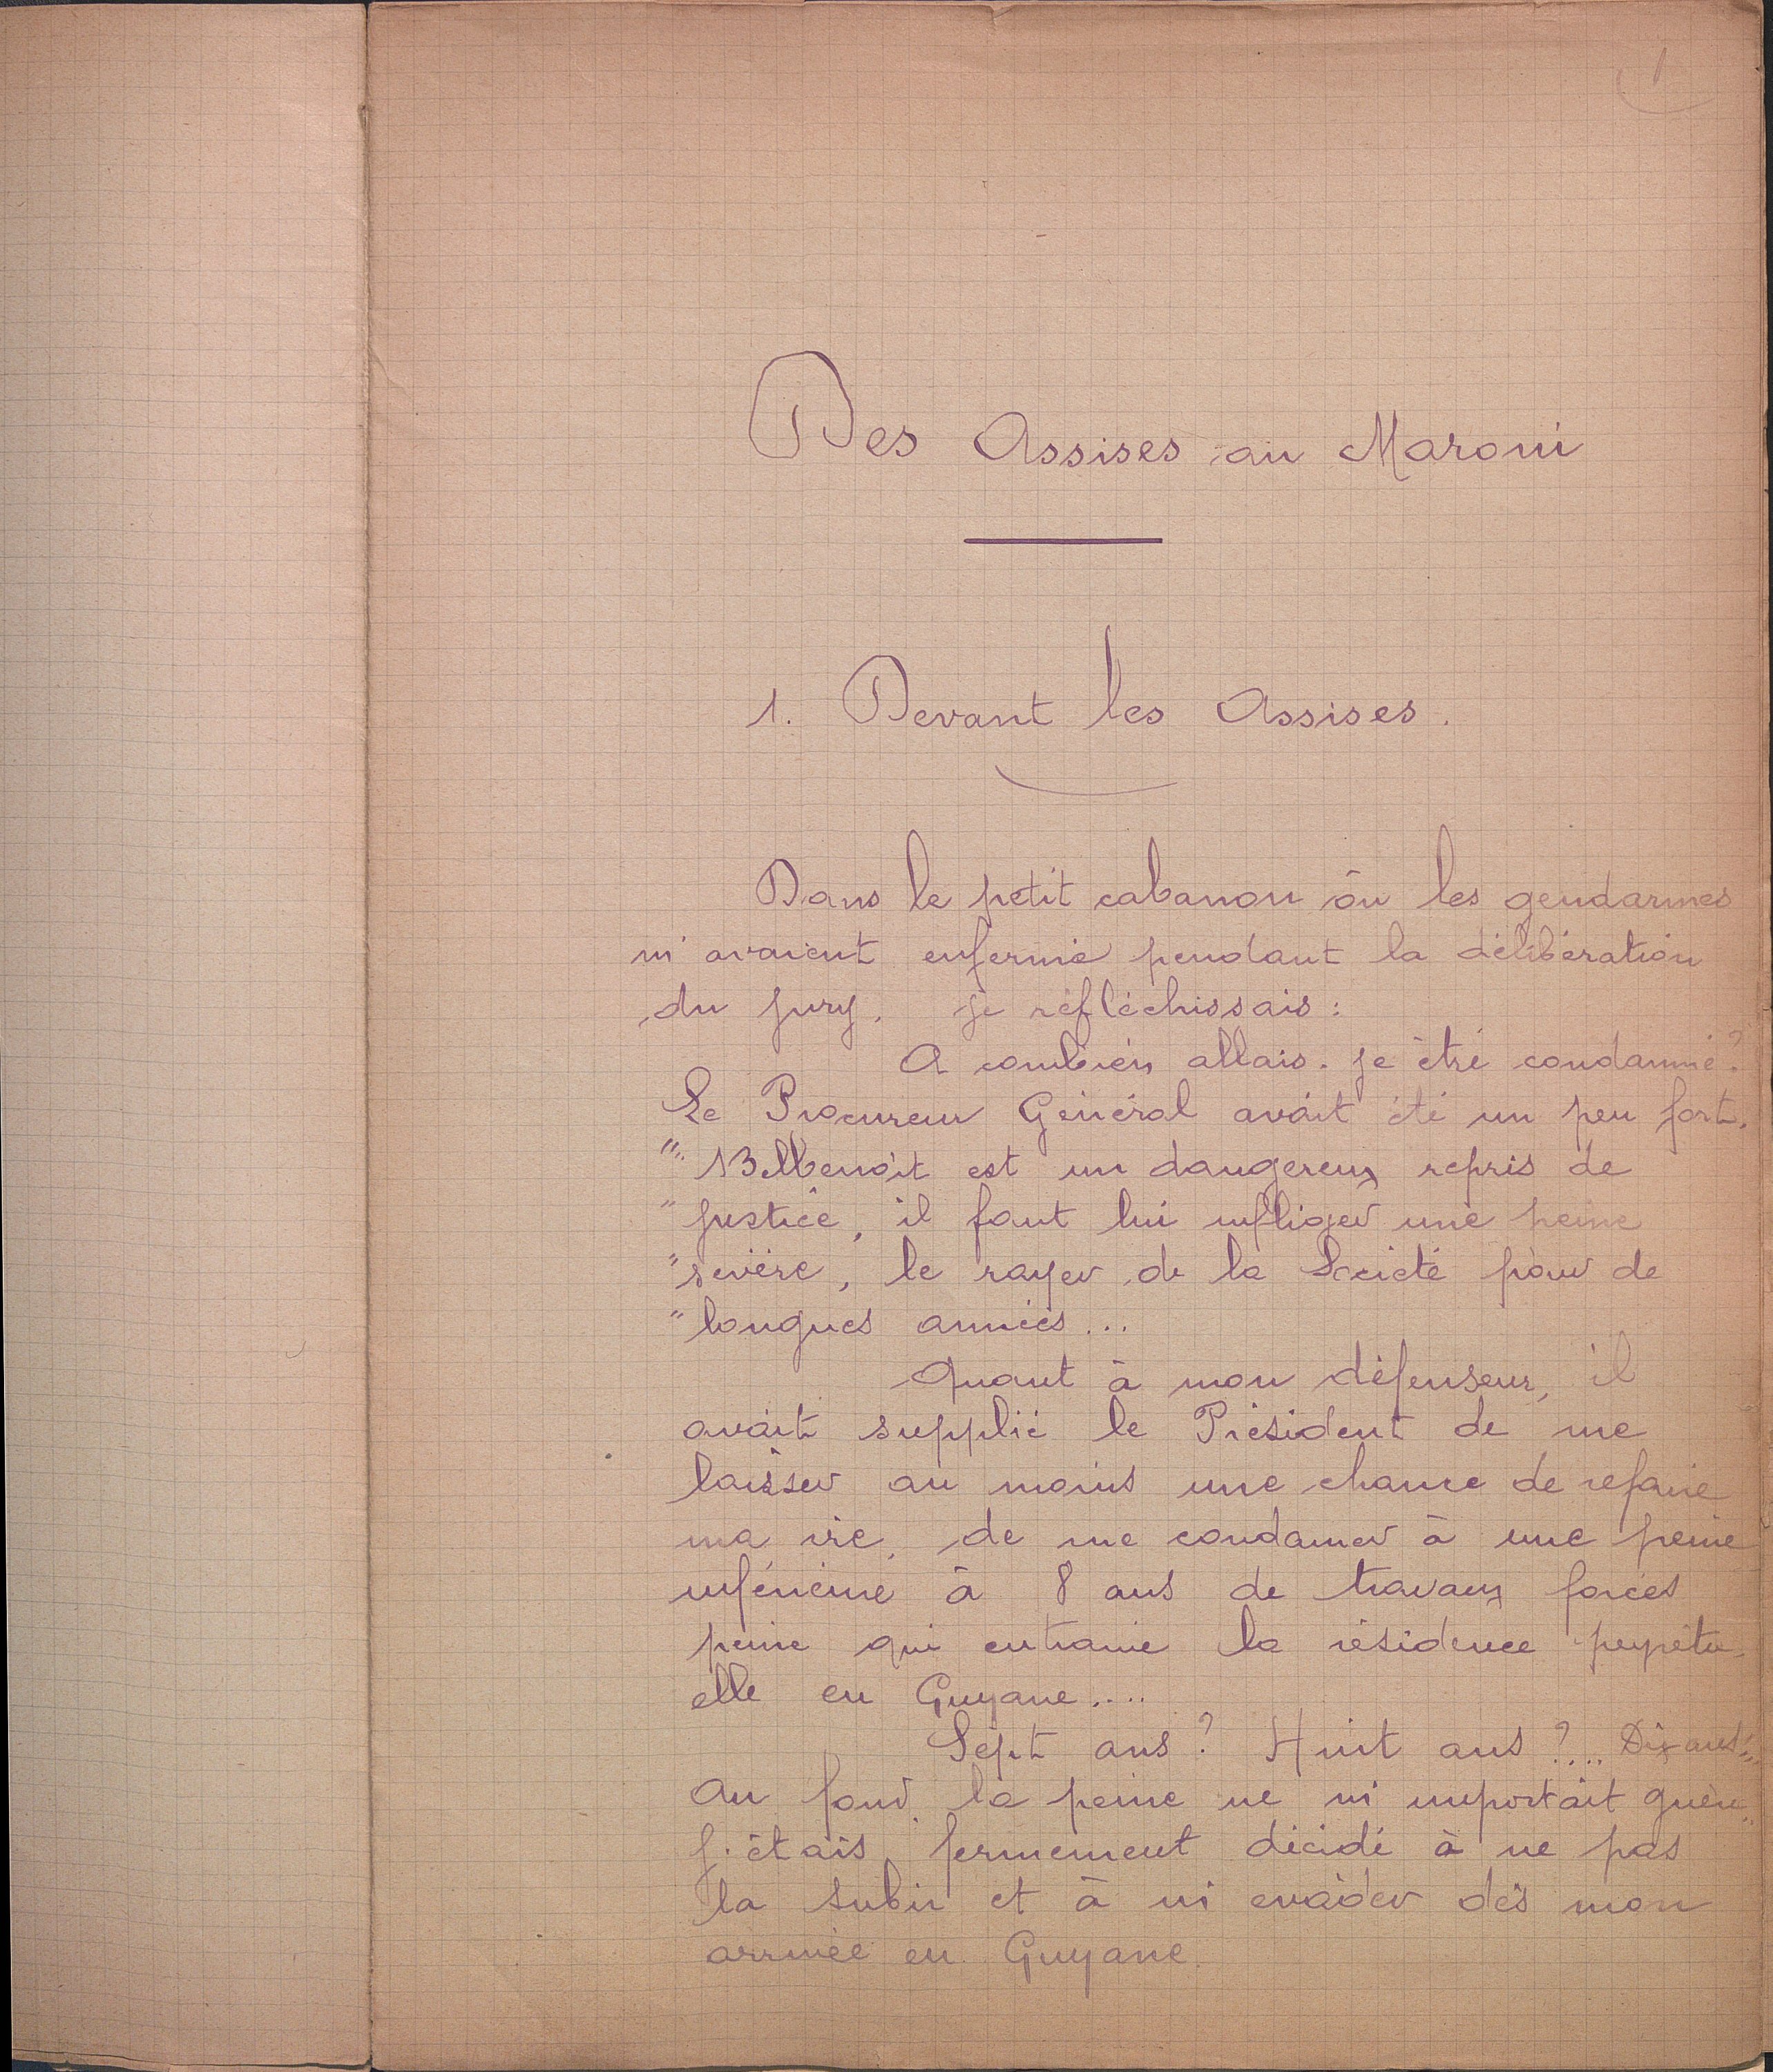 1
Des Assises au Maroni
1. Devant les Assises.
Dans le petit cabanon où les gendarmes
m'avaient enfermé pendant la délibération
du jury, je réfléchissais :
A combien allais-je être condamné ?
Le Procureur Général avait été un peu fort.
"" Belbenoit est un dangereux repris de
" justice, il faut lui infliger une peine
" sévère, le rayer de la Société pour de
" longues années...
Quant à mon défenseur, il
avait supplié le Président de me
laisser au moins une chance de refaire
ma vie, de me condamner à une peine
inférieure à 8 ans de travaux forcés
peine qui entraine la résidence perpétu-
elle en Guyane....
Sept ans ? Huit ans ?... Dix ans !..
Au fond, la peine ne m'importait guère..
J'étais fermement décidé à ne pas
la subir et à m'évader dès mon
arrivée en Guyane.